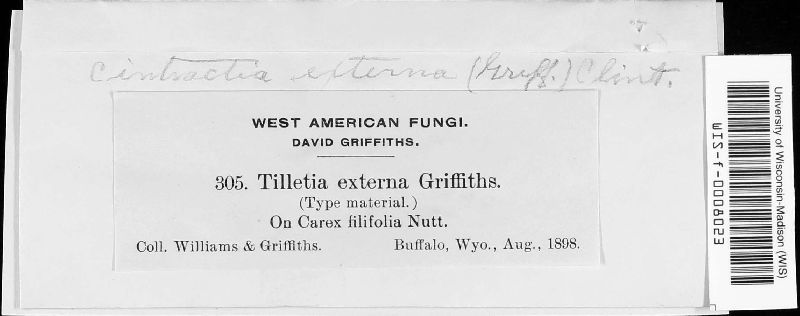 Cintractia externa (Griff.) Clint.
WEST AMERICAN FUNGI.
DAVID GRIFFITHS.
305. Tilletia externa Griffiths.
(Type material.)
On Carex filifolia Nutt.
Coll. Williams & Griffiths. Buffalo, Wyo., Aug., 1898.
University of Wisconsin-Madison (WIS)
WIS-f-0008023